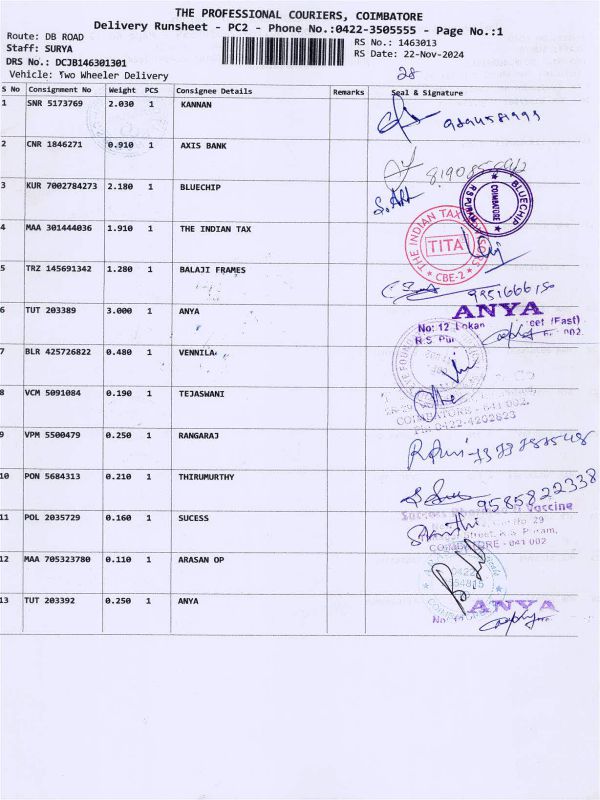 THE PROFESSIONAL COURIERS, COIMBATORE
Delivery Runsheet - PC2 - Phone No.:0422-3505555 - Page No.:1
Route: DB ROAD
Staff: SURYA
DRS No.: DCJB146301301
Vehicle: Two Wheeler Delivery
RS No.: 1463013
RS Date: 22-Nov-2024
28
S No Consignment No Weight PCS Consignee Details Remarks Seal & Signature
1 SNR 5173769 2.030 1 KANNAN
2 CNR 1846271 0.910 1 AXIS BANK
3 KUR 7002784273 2.180 1 BLUECHIP
BLUECHIP
COIMBATORE
R.S.PURAM
4 MAA 301444036 1.910 1 THE INDIAN TAX
THE INDIAN TAX
TITA
CBE-2
5 TRZ 145691342 1.280 1 BALAJI FRAMES
6 TUT 203389 3.000 1 ANYA
ANYA
No: 12 Lokan eet (East)
R.S. Pur
7 BLR 425726822 0.480 1 VENNILA
8 VCM 5091084 0.190 1 TEJASWANI
COIMBATORE - 641 002.
PH: 0422-4202623
9 VPM 5500479 0.250 1 RANGARAJ
10 PON 5684313 0.210 1 THIRUMURTHY
9585822338
11 POL 2035729 0.160 1 SUCESS
Vaccine
No. 29
Street, R.S. Puram,
COIMBATORE - 641 002
12 MAA 705323780 0.110 1 ARASAN OP
13 TUT 203392 0.250 1 ANYA
ANYA